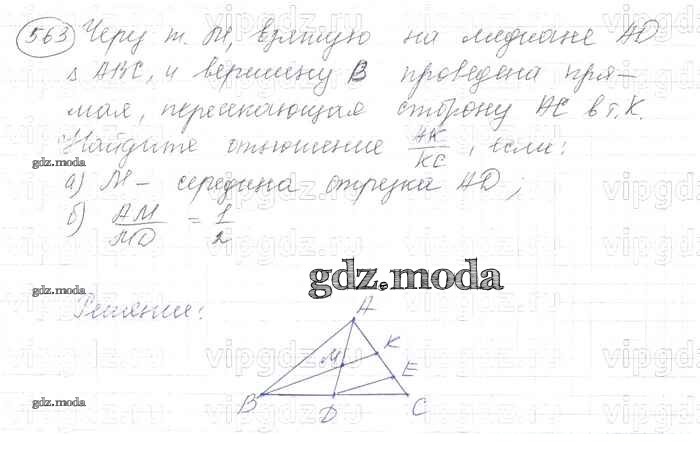 563 Через т. М, взятую на медиане AD
Δ ABC, и вершину B проведена пря-
мая, пересекающая сторону AC в т. K.
Найдите отношение AK/KC, если:
gdz.moda
а) M - середина отрезка AD;
б) AM/MD = 1/2
gdz.moda
gdz.moda
Решение:
A
K
M
E
gdz.moda
B
D
C
vipgdz.ru